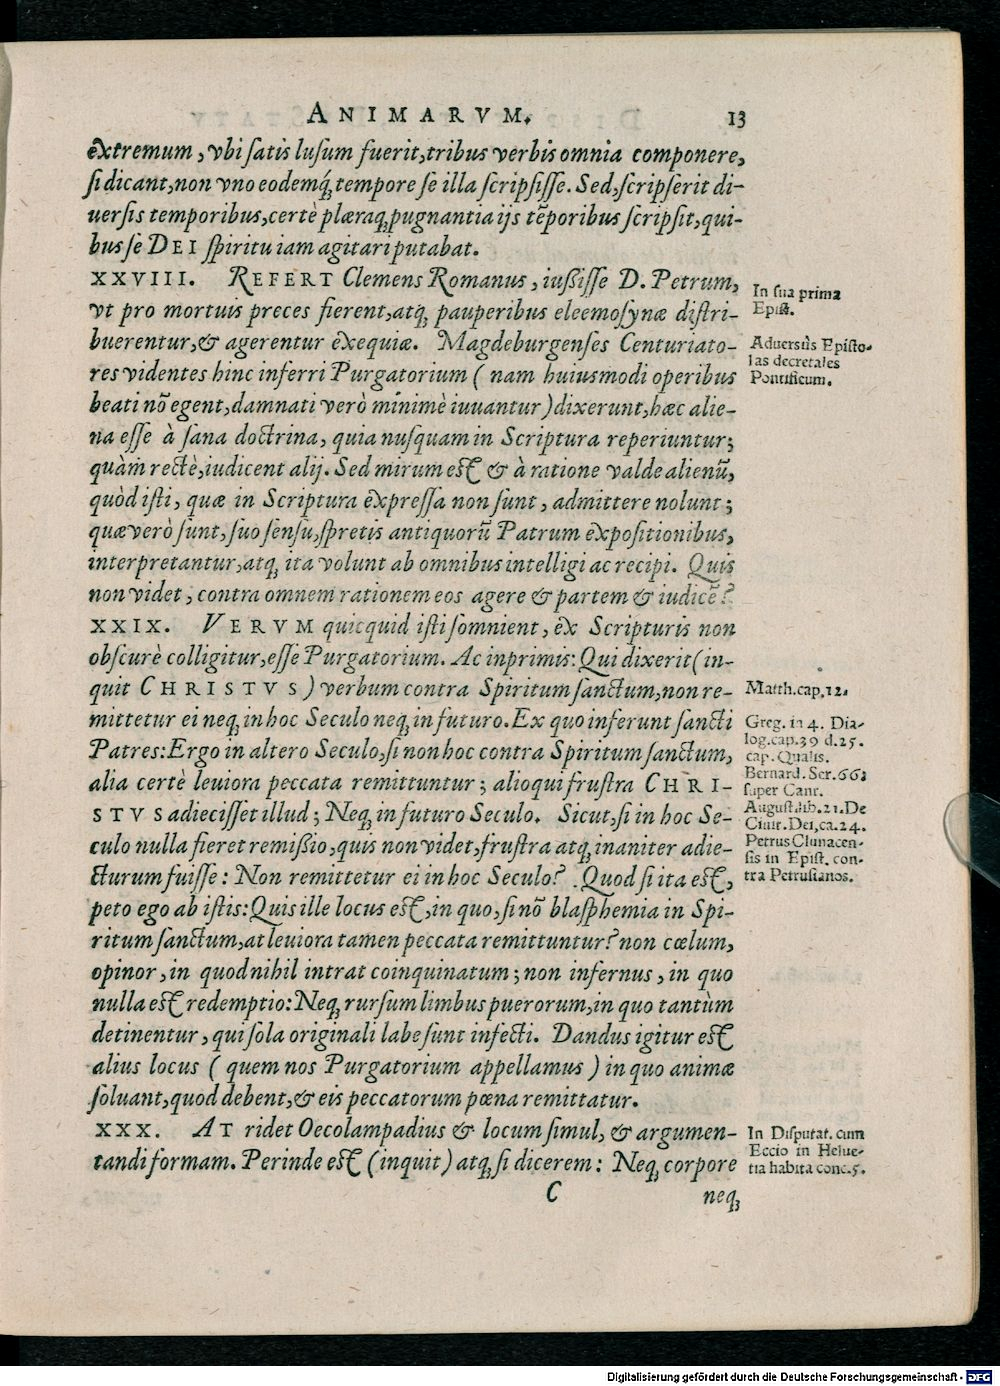 ANIMARVM. 13
extremum, vbi satis lusum fuerit, tribus verbis omnia componere,
si dicant, non vno eodemq́; tempore se illa scripsisse. Sed, scripserit di-
uersis temporibus, certè plæraq; pugnantia ijs tẽporibus scripsit, qui-
bus se DEI spiritu iam agitari putabat.
XXVIII. REFERT Clemens Romanus, iußisse D. Petrum,
vt pro mortuis preces fierent, atq; pauperibus eleemosynæ distri-
buerentur, & agerentur exequiæ. Magdeburgenses Centuriato-
res videntes hinc inferri Purgatorium (nam huiusmodi operibus
beati nõ egent, damnati verò minimè iuuantur) dixerunt, hæc alie-
na esse à sana doctrina, quia nusquam in Scriptura reperiuntur;
quàm rectè, iudicent alij. Sed mirum est & à ratione valde alienũ,
quòd isti, quæ in Scriptura expressa non sunt, admittere nolunt;
quæ verò sunt, suo sensu, spretis antiquorũ Patrum expositionibus,
interpretantur, atq; ita volunt ab omnibus intelligi ac recipi. Quis
non videt, contra omnem rationem eos agere & partem & iudicẽ?
XXIX. VERVM quicquid isti somnient, ex Scripturis non
obscurè colligitur, esse Purgatorium. Ac inprimis: Qui dixerit (in-
quit CHRISTVS) verbum contra Spiritum sanctum, non re-
mittetur ei neq; in hoc Seculo neq; in futuro. Ex quo inferunt sancti
Patres: Ergo in altero Seculo, si non hoc contra Spiritum sanctum,
alia certè leuiora peccata remittuntur; alioqui frustra CHRI-
STVS adiecisset illud; Neq; in futuro Seculo. Sicut, si in hoc Se-
culo nulla fieret remißio, quis non videt, frustra atq; inaniter adie-
cturum fuisse: Non remittetur ei in hoc Seculo? Quod si ita est,
peto ego ab istis: Quis ille locus est, in quo, si nõ blasphemia in Spi-
ritum sanctum, at leuiora tamen peccata remittuntur? non cœlum,
opinor, in quod nihil intrat coinquinatum; non infernus, in quo
nulla est redemptio: Neq; rursum limbus puerorum, in quo tantùm
detinentur, qui sola originali labe sunt infecti. Dandus igitur est
alius locus (quem nos Purgatorium appellamus) in quo animæ
soluant, quod debent, & eis peccatorum pœna remittatur.
XXX. AT ridet Oecolampadius & locum simul, & argumen-
tandi formam. Perinde est (inquit) atq; si dicerem: Neq; corpore
C neq;
In sua prima
Epist.
Aduersùs Episto-
las decretales
Pontificum.
Matth. cap. 12.
Greg. in 4. Dia-
log. cap. 39 d. 25.
cap. Qualis.
Bernard. Ser. 66.
super Cant.
August. lib. 21. De
Ciuit. Dei, ca. 24.
Petrus Clunacen-
sis in Epist. con-
tra Petrusianos.
In Disputat. cum
Eccio in Helue-
tia habita conc. 5.
Digitalisierung gefördert durch die Deutsche Forschungsgemeinschaft - DFG